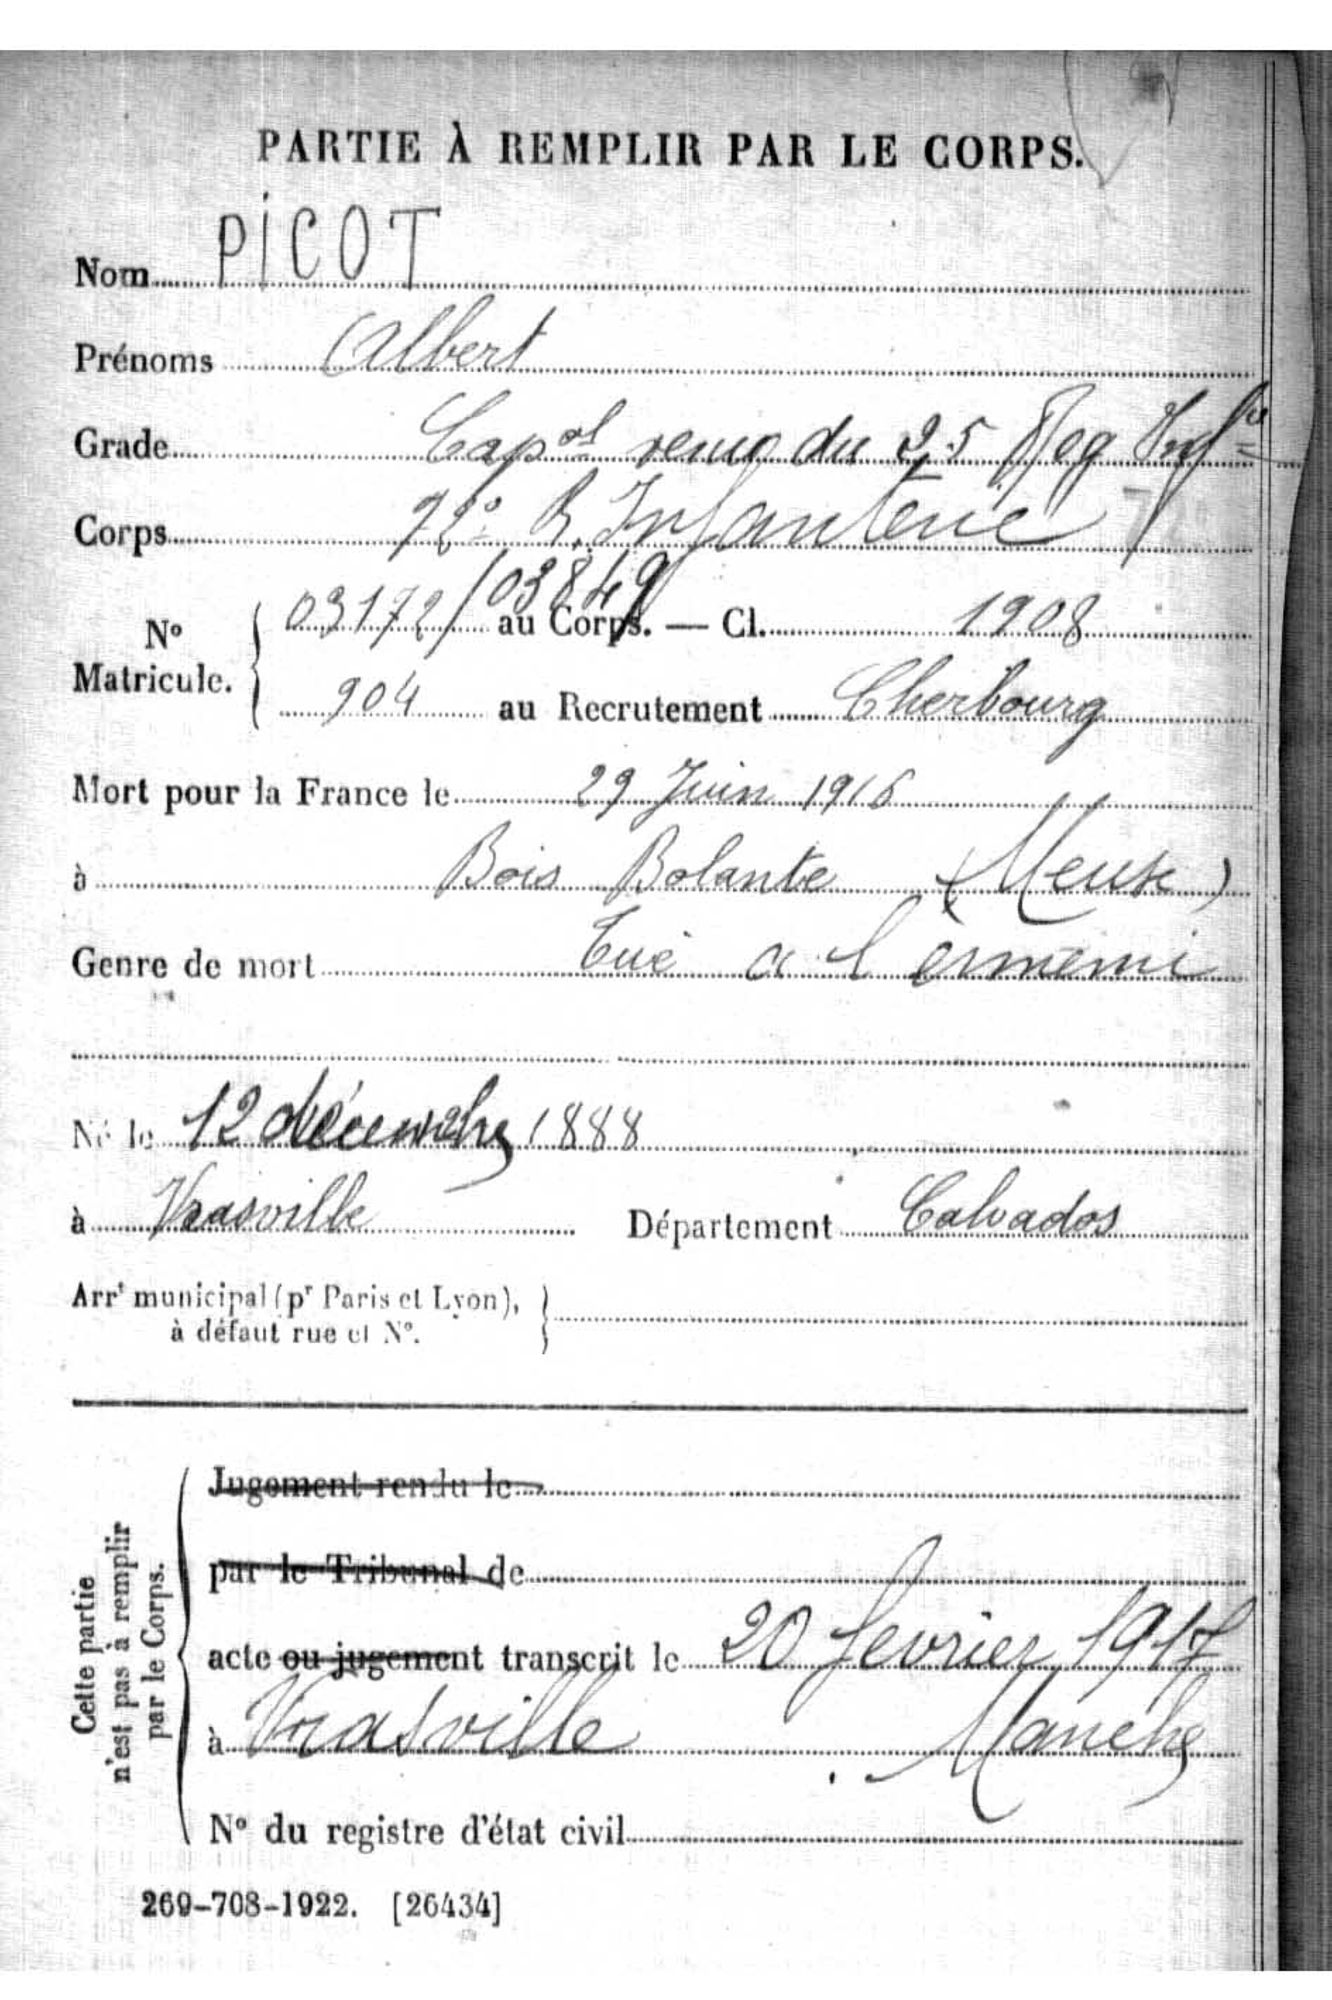 PARTIE À REMPLIR PAR LE CORPS.
Nom PICOT
Prénoms Albert
Grade Cap^al du 25 Reg Inf^ie
Corps 72° R. Infanterie
N° Matricule. 03172/03849 au Corps. — Cl. 1908
904 au Recrutement Cherbourg
Mort pour la France le 29 Juin 1916
à Bois Bolante (Meuse)
Genre de mort Tué a l'ennemi
Né le 12 décembre 1888
à Vrasville Département Calvados
Arr^t municipal (p^r Paris et Lyon),
à défaut rue et N°.
Cette partie
n'est pas à remplir
par le Corps.
Jugement rendu le
par le Tribunal de
acte ou jugement transcrit le 20 fevrier 1917
à Vrasville Manche
N° du registre d'état civil
269-708-1922. [26434]